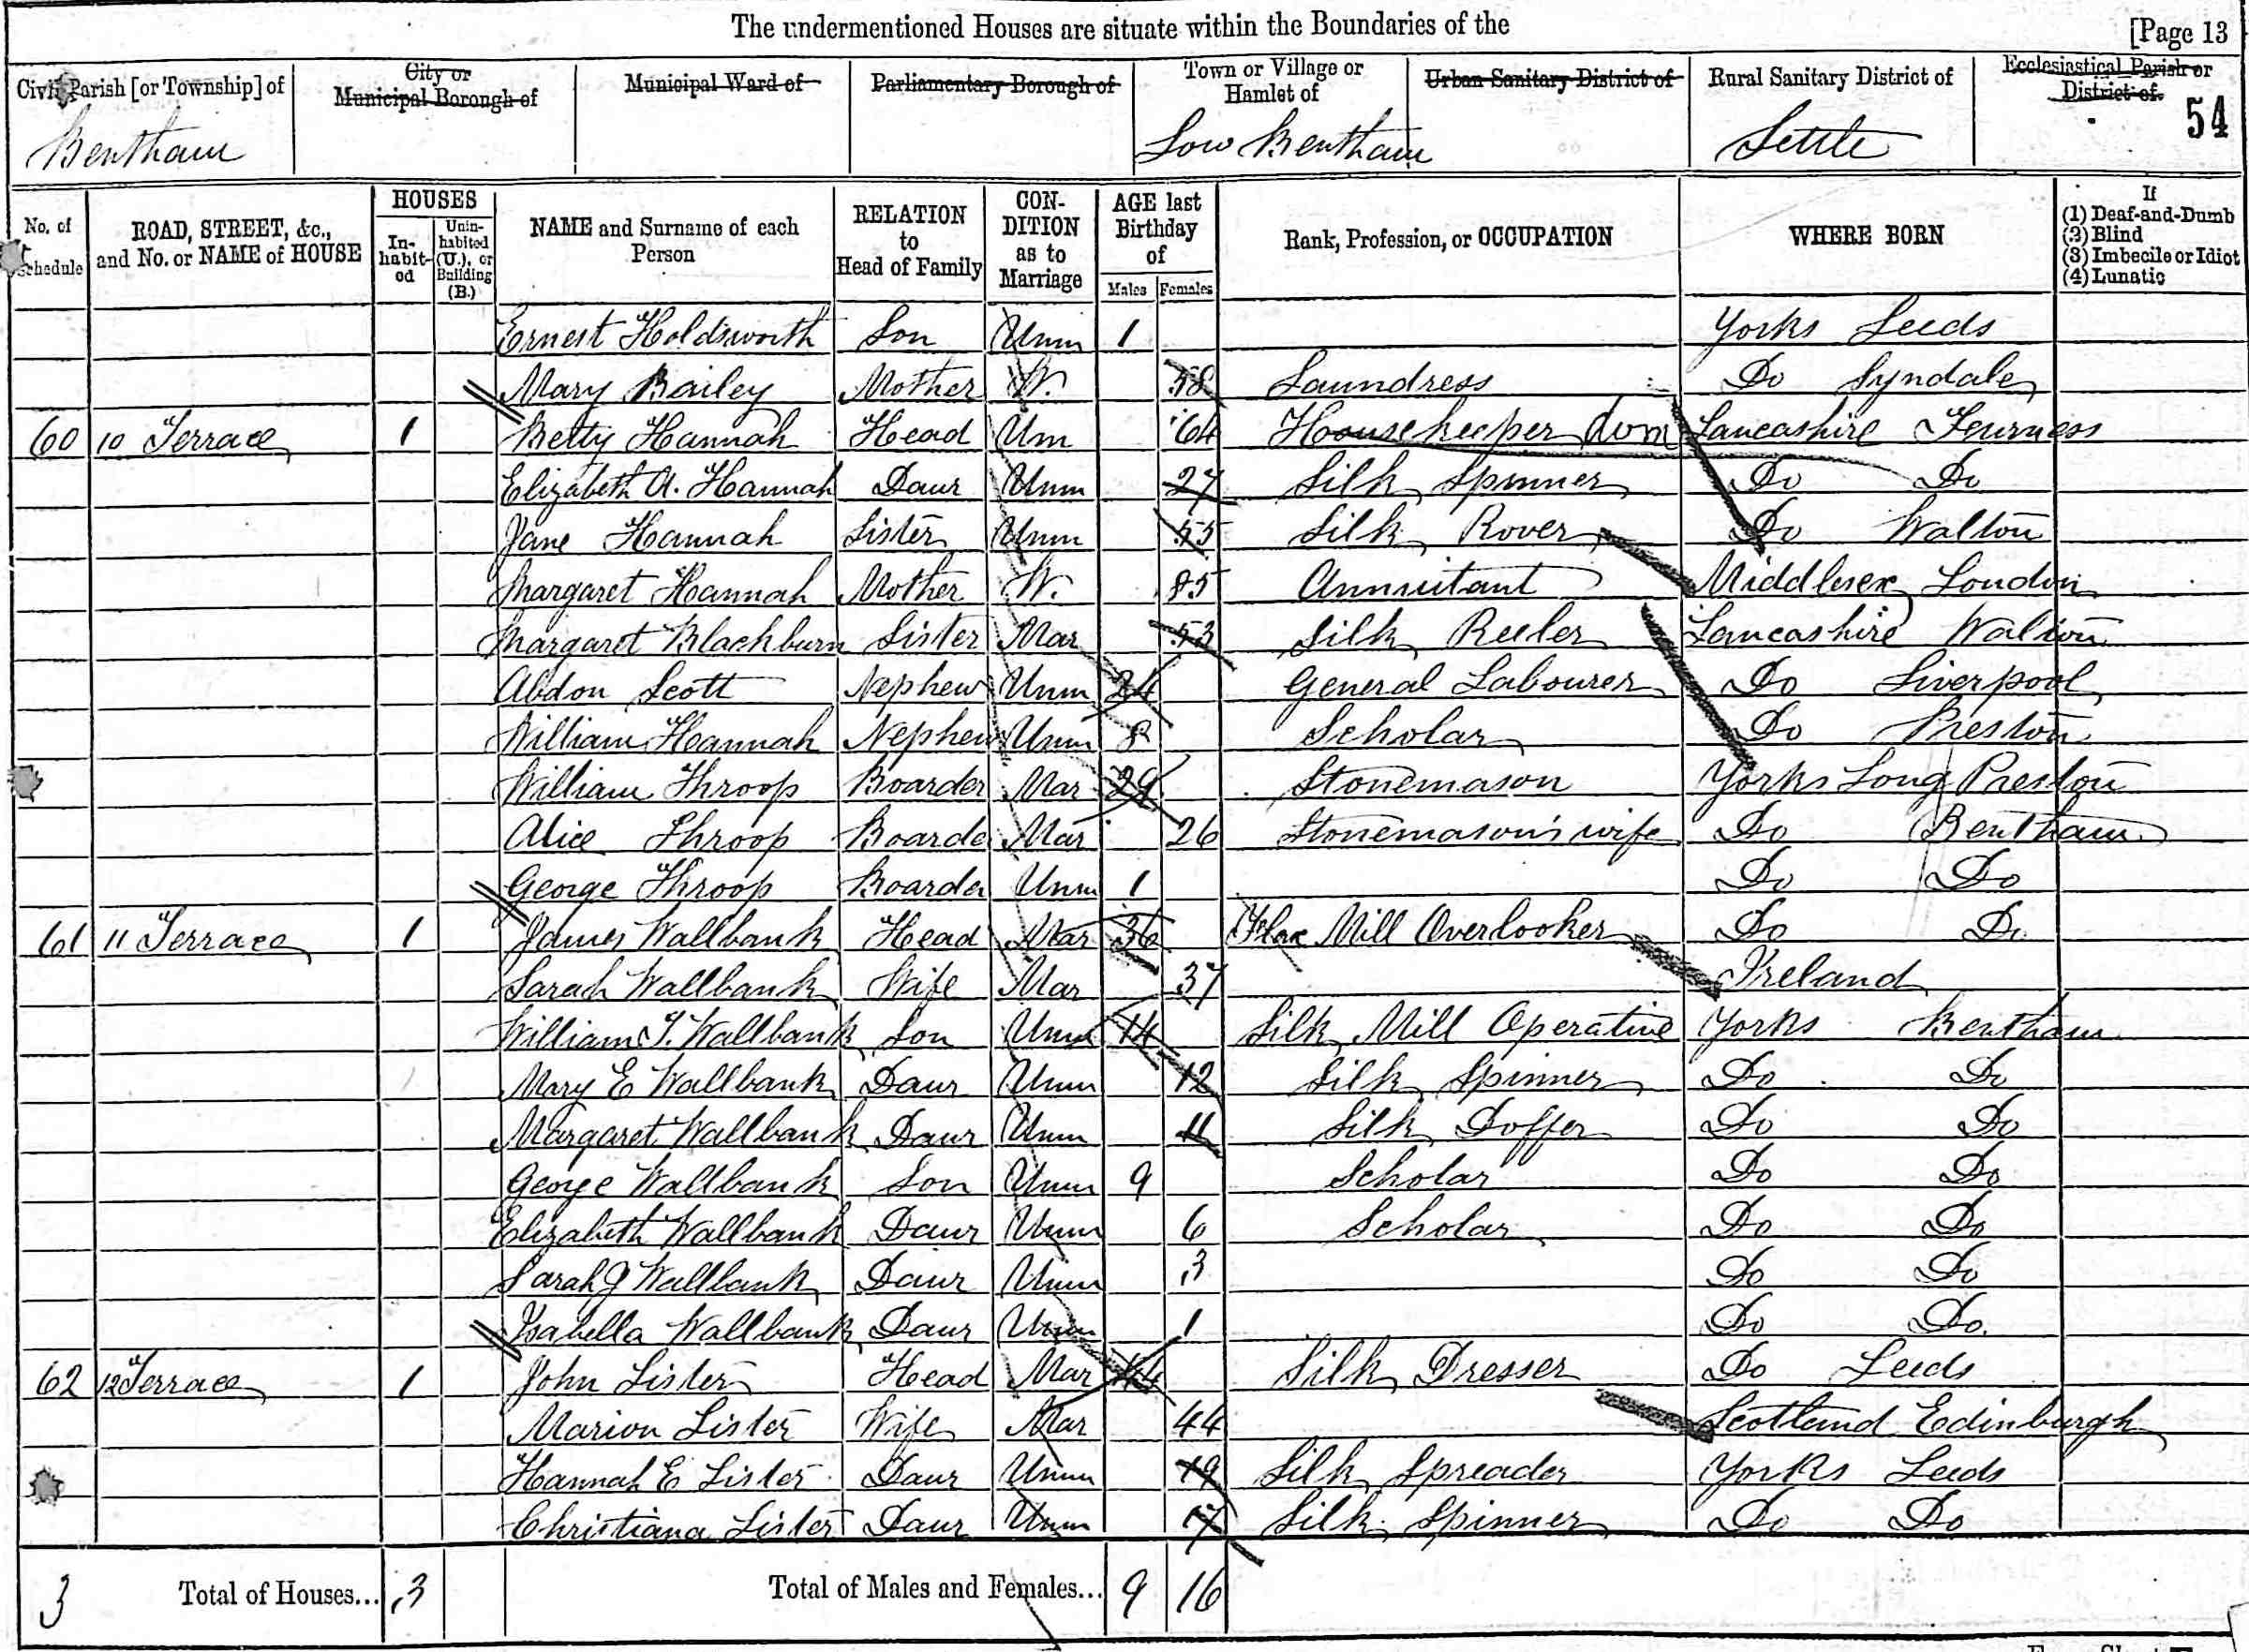 The undermentioned Houses are situate within the Boundaries of the [Page 13
Civil Parish [or Township] of City or Municipal Borough of Municipal Ward of Parliamentary Borough of Town or Village or Hamlet of Urban Sanitary District of Rural Sanitary District of Ecclesiastical Parish or District of
Bentham Low Bentham Settle 54
No. of Schedule ROAD, STREET, &c., and No. or NAME of HOUSE HOUSES In-habit-ed Unin-habited (U.), or Building (B.) NAME and Surname of each Person RELATION to Head of Family CON-DITION as to Marriage AGE last Birthday of Males Females Rank, Profession, or OCCUPATION WHERE BORN If (1) Deaf-and-Dumb (3) Blind (3) Imbecile or Idiot (4) Lunatic
Ernest Holdsworth Son Unm 1 Yorks Leeds
Mary Bailey Mother W. 58 Laundress Do Lyndale
60 10 Terrace 1 Betty Hannah Head Um 64 Housekeeper dom Lancashire Furness
Elizabeth A. Hannah Daur Unm 27 Silk Spinner Do Do
Jane Hannah Sister Unm 55 Silk Rover Do Walton
Margaret Hannah Mother W. 85 Annuitant Middlesex London
Margaret Blackburn Sister Mar 53 Silk Reeler Lancashire Walton
Abdon Scott Nephew Unm 24 General Labourer Do Liverpool
William Hannah Nephew Unm 8 Scholar Do Preston
William Throop Boarder Mar 29 Stonemason Yorks Long Preston
Alice Throop Boarder Mar 26 Stonemason's wife Do Bentham
George Throop Boarder Unm 1 Do Do
61 11 Terrace 1 James Wallbank Head Mar 36 Flax Mill Overlooker Do Do
Sarah Wallbank Wife Mar 37 Ireland
William T. Wallbank Son Unm 14 Silk Mill Operative Yorks Bentham
Mary E Wallbank Daur Unm 12 Silk Spinner Do Do
Margaret Wallbank Daur Unm 11 Silk Doffer Do Do
George Wallbank Son Unm 9 Scholar Do Do
Elizabeth Wallbank Daur Unm 6 Scholar Do Do
Sarah J Wallbank Daur Unm 3 Do Do
Isabella Wallbank Daur Unm 1 Do Do.
62 12 Terrace 1 John Lister Head Mar 44 Silk Dresser Do Leeds
Marion Lister Wife Mar 44 Scotland Edinburgh
Hannah E Lister Daur Unm 19 Silk Spreader Yorks Leeds
Christiana Lister Daur Unm 17 Silk Spinner Do Do
3 Total of Houses... 3 Total of Males and Females... 9 16